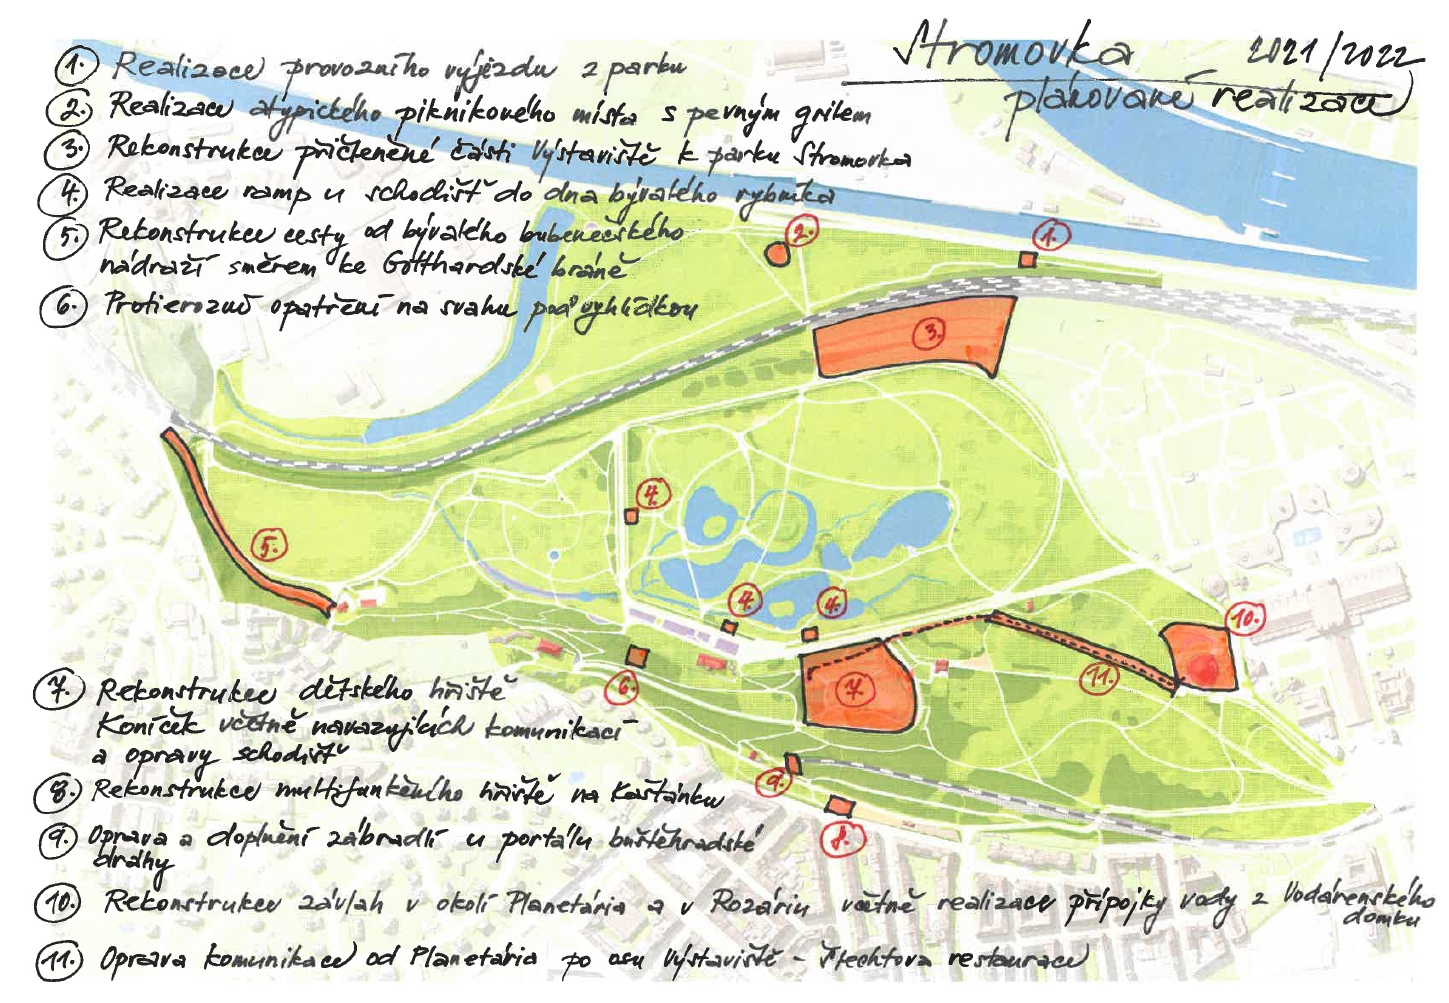 Stromovka 2021/2022
plánované realizace
1. Realizace provozního výjezdu z parku
2. Realizace atypického piknikového místa s pevným grilem
3. Rekonstrukce přičleněné části Výstaviště k parku Stromovka
4. Realizace ramp u schodišť do dna bývalého rybníka
5. Rekonstrukce cesty od bývalého bubenečského
nádraží směrem ke Gotthardské bráně
6. Protierozní opatření na svahu pod vyhlídkou
2.
1.
3.
4.
5.
4.
4.
10.
6.
7.
11.
9.
8.
7. Rekonstrukce dětského hřiště
Koníček včetně navazujících komunikací
a opravy schodišť
8. Rekonstrukce multifunkčního hřiště na Kaštánku
9. Oprava a doplnění zábradlí u portálu buštěhradské
dráhy
10. Rekonstrukce závlah v okolí Planetária a v Rozáriu včetně realizace přípojky vody z Vodárenského
domku
11. Oprava komunikace od Planetária po osu Výstaviště - Šlechtova restaurace